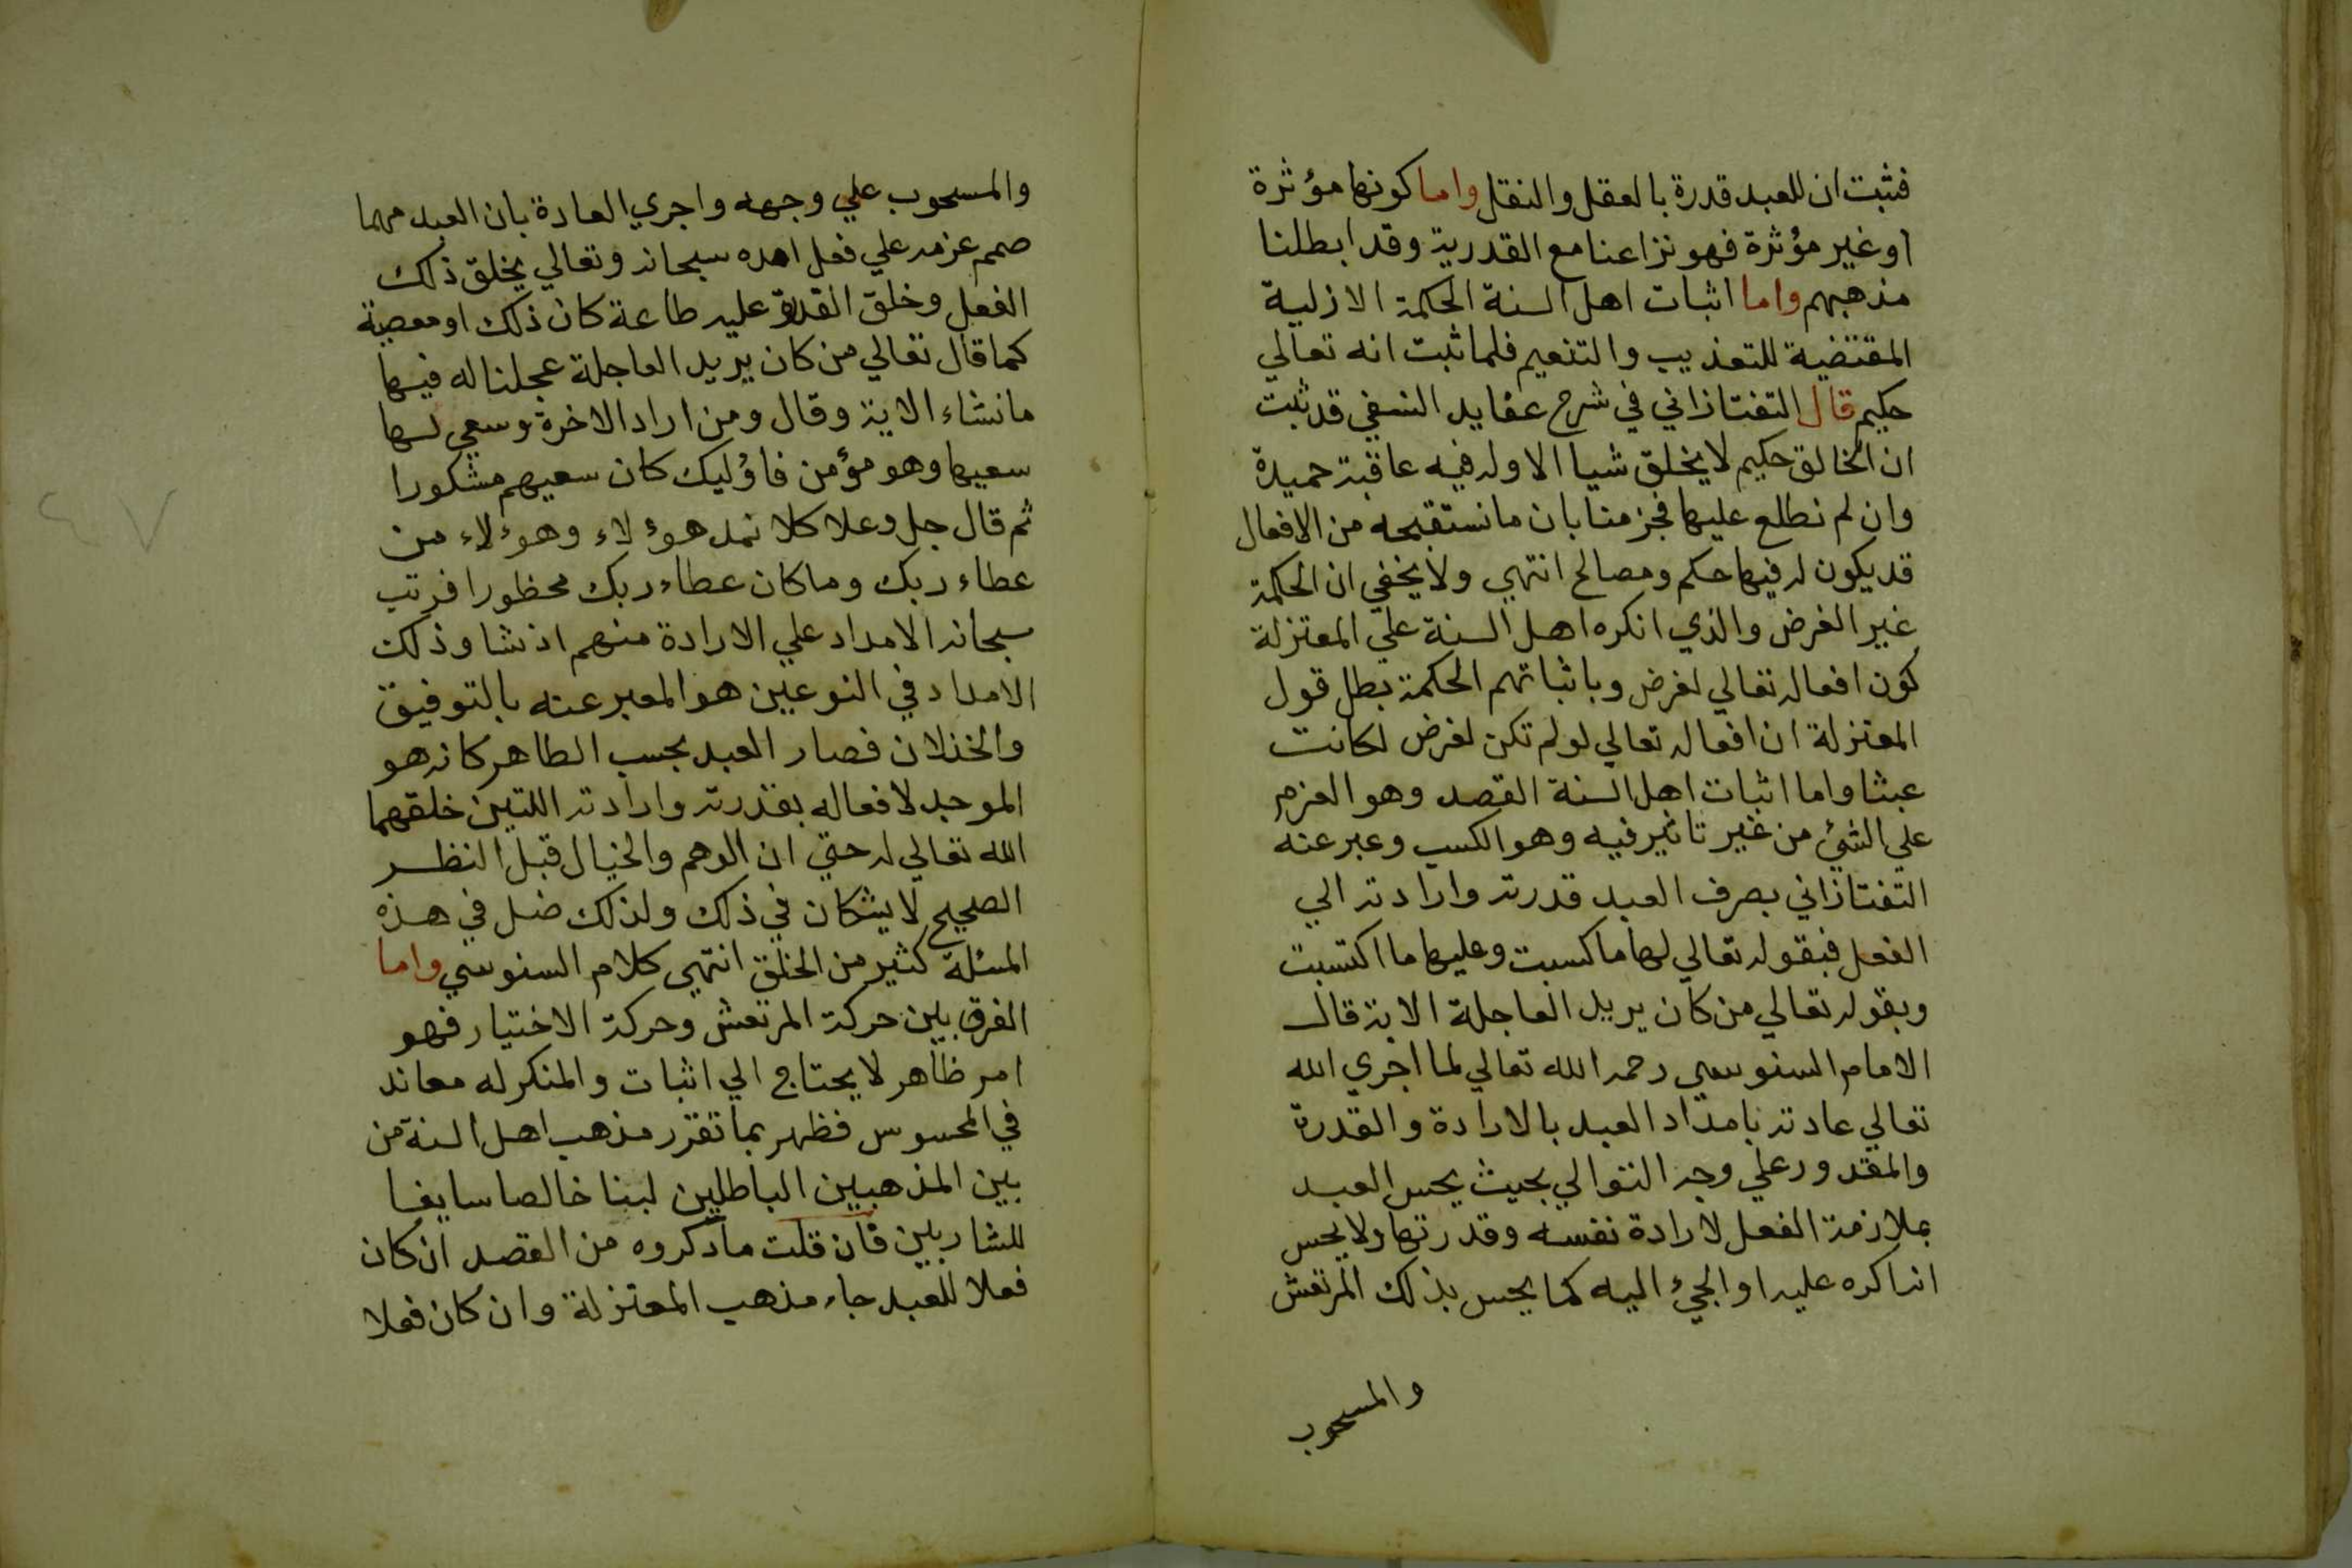 فثبت ان للعبد قدرة بالعقل والنقل واما كونها مؤثرة
او غير مؤثرة فهو نزاعنا مع القدرية وقد ابطلنا
مذهبهم واما اثبات اهل السنة الحكمة الازلية
المقتضية للتعذيب والتنعيم فلما ثبت انه تعالي
حكيم قال التفتازاني في شرح عقايد النسفي قد ثبت
ان الخالق حكيم لا يخلق شيا الا وله فيه عاقبة حميدة
وان لم نطلع عليها فجزمنا بان ما نستقبحه من الافعال
قد يكون له فيها حكم ومصالح انتهي ولا يخفي ان الحكمة
غير الغرض والذي انكره اهل السنة علي المعتزلة
كون افعاله تعالي لغرض وباثباتهم الحكمة بطل قول
المعتزلة ان افعاله تعالي لو لم تكن لغرض لكانت
عبثا واما اثبات اهل السنة القصد وهو العزم
علي الشئ من غير تاثير فيه وهو الكسب وعبر عنه
التفتازاني بصرف العبد قدرته وارادته الي
الفعل فبقوله تعالي لها ما كسبت وعليها ما اكتسبت
وبقوله تعالي من كان يريد العاجلة الاية قال
الامام السنوسي رحمه الله تعالي لما اجري الله
تعالي عادته بامداد العبد بالارادة والقدرة
والمقدور علي وجه التوالي بحيث يحس العبد
بملازمة الفعل لارادة نفسه وقدرتها ولا يحس
انه اكره عليه او الجئ اليه كما يحس بذلك المرتعش
والمسحوب
والمسحوب علي وجهه واجري العادة بان العبد مهما
صمم عزمه علي فعل امده سبحانه وتعالي يخلق ذلك
الفعل وخلق القدرة عليه طاعة كان ذلك او معصية
كما قال تعالي من كان يريد العاجلة عجلنا له فيها
ما نشاء الاية وقال ومن اراد الاخرة وسعي لها
سعيها وهو مؤمن فاؤليك كان سعيهم مشكورا
ثم قال جل وعلا كلا نمد هوؤلاء وهوؤلاء من
عطاء ربك وما كان عطاء ربك محظورا فرتب
سبحانه الامداد علي الارادة منهم اذ نشا وذلك
الامداد في النوعين هو المعبر عنه بالتوفيق
والخذلان فصار العبد بحسب الظاهر كانه هو
الموجد لافعاله بقدرته وارادته اللتين خلقهما
الله تعالي له حتي ان الوهم والخيال قبل النظر
الصحيح لا يشكان في ذلك ولذلك ضل في هذه
المسئلة كثير من الخلق انتهي كلام السنوسي واما
الفرق بين حركة المرتعش وحركة الاختيار فهو
امر ظاهر لا يحتاج الي اثبات والمنكر له معاند
في المحسوس فظهر بما تقرر مذهب اهل السنة من
بين المذهبين الباطلين لبنا خالصا سايغا
للشاربين فان قلت ما ذكروه من القصد ان كان
فعلا للعبد جاء مذهب المعتزلة وان كان فعلا
٤٧